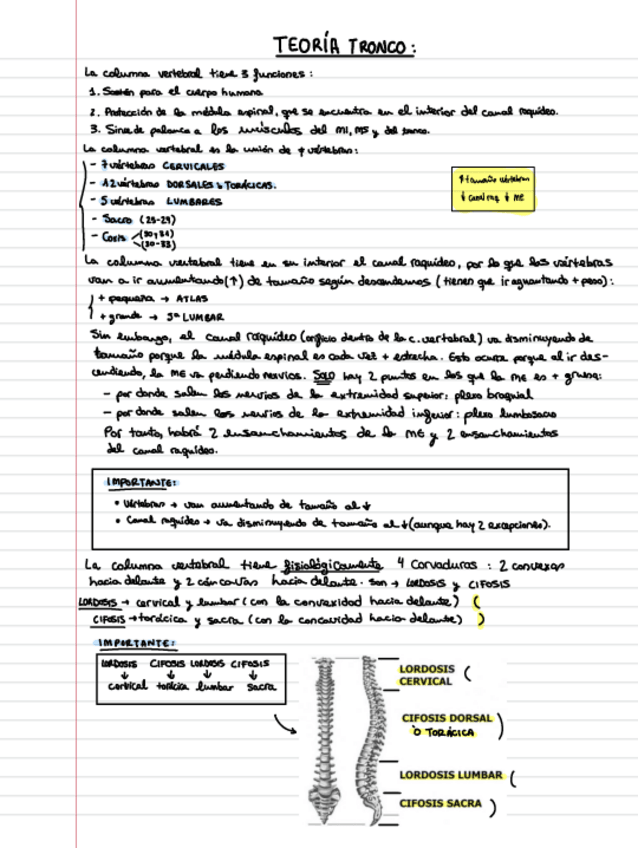 TEORÍA TRONCO:
La columna vertebral tiene 3 funciones:
1. Sostén para el cuerpo humano
2. Protección de la médula espinal, que se encuentra en el interior del canal raquídeo.
3. Sirve de palanca a los músculos del MI, MS y del tronco.
La columna vertebral es la unión de vértebras:
- 7 vértebras CERVICALES
- 12 vértebras DORSALES o TORÁCICAS.
- 5 vértebras LUMBARES
- Sacro (25-29)
- Coxis (30 y 31)
(30-33)
↑ tamaño vértebras
↓ canal raq ↓ ME
La columna vertebral tiene en su interior el canal raquídeo, por lo que las vértebras
van a ir aumentando (↑) de tamaño según descendemos (tienen que ir aguantando + peso):
+ pequeña → ATLAS
+ grande → 5ª LUMBAR
Sin embargo, el canal raquídeo (orificio dentro de la c. vertebral) va disminuyendo de
tamaño porque la médula espinal es cada vez + estrecha. Esto ocurre porque al ir des-
cendiendo, la ME va perdiendo nervios. SOLO hay 2 puntos en los que la ME es + gruesa:
- por donde salen los nervios de la extremidad superior: plexo braquial
- por donde salen los nervios de la extremidad inferior: plexo lumbosacro
Por tanto, habrá 2 ensanchamientos de la ME y 2 ensanchamientos
del canal raquídeo.
IMPORTANTE:
• Vértebras → van aumentando de tamaño al ↓
• Canal raquídeo → va disminuyendo de tamaño al ↓ (aunque hay 2 excepciones).
La columna vertebral tiene fisiológicamente 4 curvaduras: 2 convexas
hacia delante y 2 cóncavas hacia delante. Son → LORDOSIS y CIFOSIS
LORDOSIS → cervical y lumbar (con la convexidad hacia delante) (
CIFOSIS → torácica y sacra (con la concavidad hacia delante) )
IMPORTANTE:
LORDOSIS CIFOSIS LORDOSIS CIFOSIS
↓ ↓ ↓ ↓
cervical torácica lumbar sacra
LORDOSIS (
CERVICAL
CIFOSIS DORSAL )
o TORÁCICA
LORDOSIS LUMBAR (
CIFOSIS SACRA )